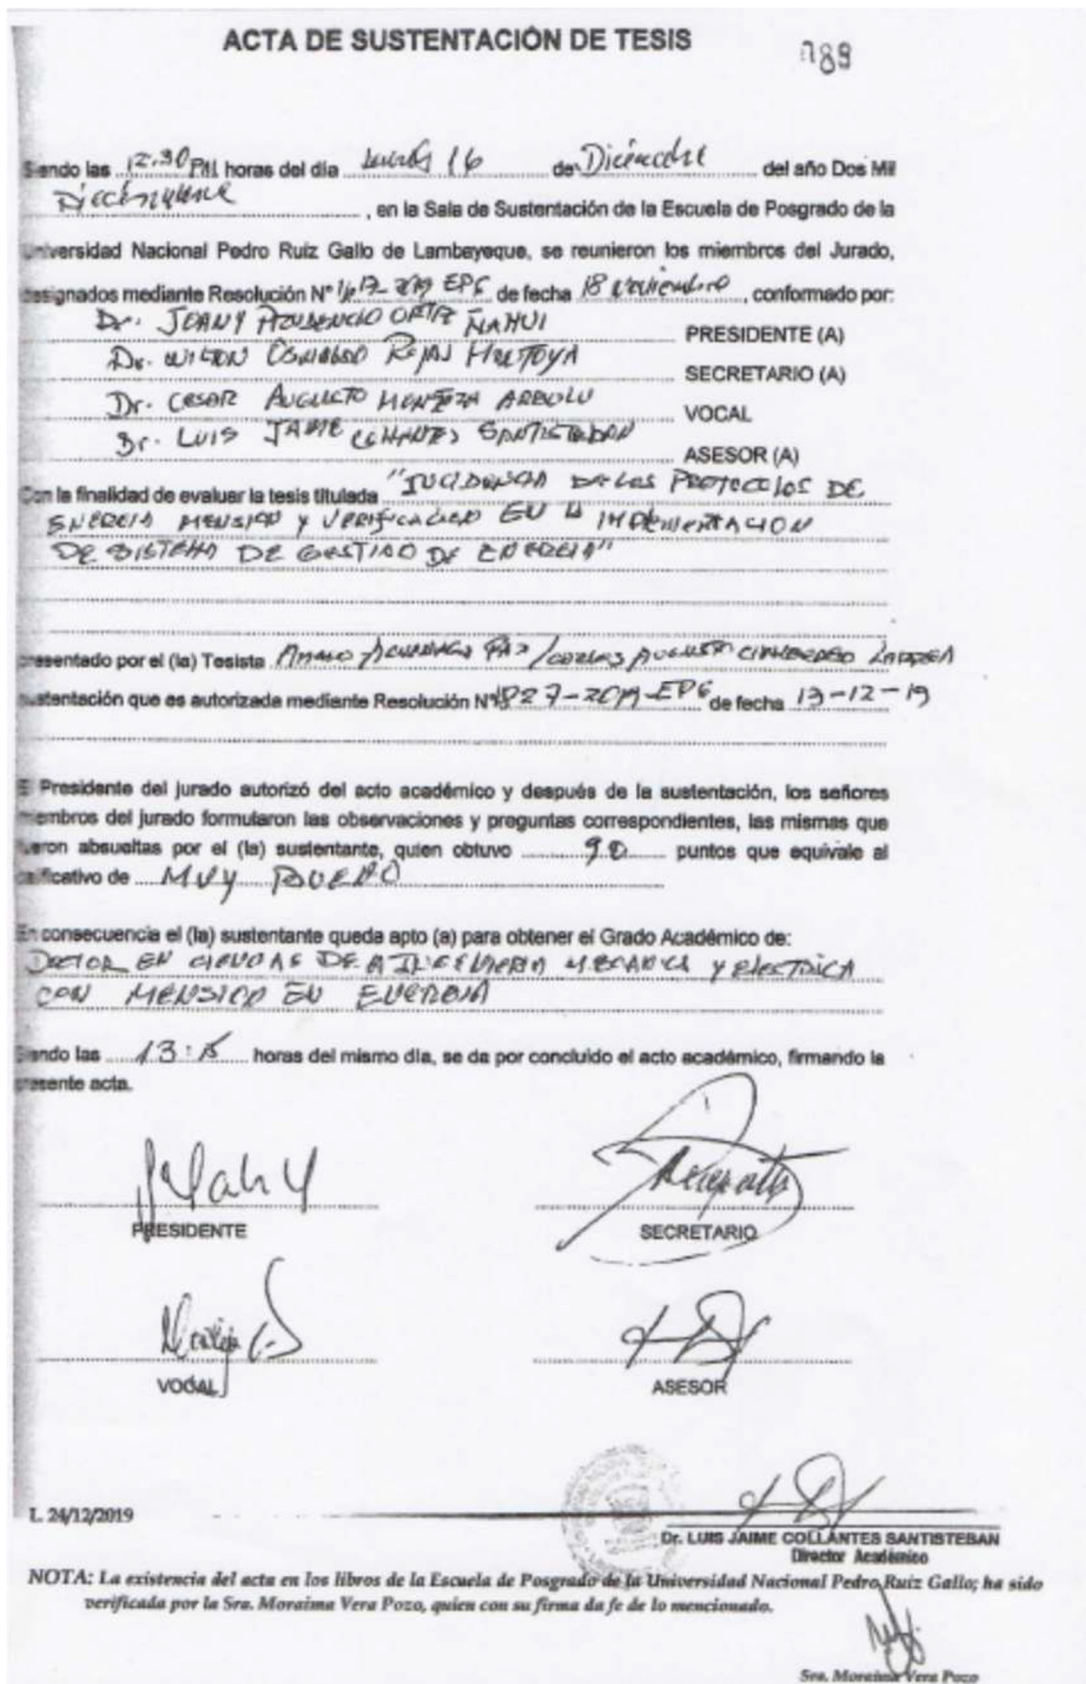 ACTA DE SUSTENTACIÓN DE TESIS
089
Siendo las 12:30 PM horas del día lunes 16 de Diciembre del año Dos Mil
Diecinueve, en la Sala de Sustentación de la Escuela de Posgrado de la
Universidad Nacional Pedro Ruiz Gallo de Lambayeque, se reunieron los miembros del Jurado,
designados mediante Resolución N° EPG de fecha 18 noviembre, conformado por:
Dr. JOANY ÑAHUI PRESIDENTE (A)
Dr. ROJAS SECRETARIO (A)
Dr. CESAR AUGUSTO VOCAL
Dr. LUIS JAIME COLLANTES SANTISTEBAN ASESOR (A)
Con la finalidad de evaluar la tesis titulada "INCIDENCIA DE LOS PROTOCOLOS DE
ENERGIA MENSION y VERIFICACION EN LA IMPLEMENTACION
DE SISTEMA DE GESTIAO DE ENERGIA"
presentado por el (la) Tesista PAZ / CARLOS AUGUSTO LARREA
sustentación que es autorizada mediante Resolución N° 27-2019-EPG de fecha 13-12-19
El Presidente del jurado autorizó del acto académico y después de la sustentación, los señores
miembros del jurado formularon las observaciones y preguntas correspondientes, las mismas que
fueron absueltas por el (la) sustentante, quien obtuvo 90 puntos que equivale al
calificativo de MUY BUENO
En consecuencia el (la) sustentante queda apto (a) para obtener el Grado Académico de:
DOCTOR EN CIENCIAS DE INGENIERIA MECANICA y ELECTRICA
CON MENSION EN ENERGIA
Siendo las 13:15 horas del mismo día, se da por concluido el acto académico, firmando la
presente acta.
PRESIDENTE
SECRETARIO
VOCAL
ASESOR
L. 24/12/2019
Dr. LUIS JAIME COLLANTES SANTISTEBAN
Director Académico
NOTA: La existencia del acta en los libros de la Escuela de Posgrado de la Universidad Nacional Pedro Ruiz Gallo; ha sido
verificada por la Sra. Moraima Vera Pozo, quien con su firma da fe de lo mencionado.
Sra. Moraima Vera Pozo